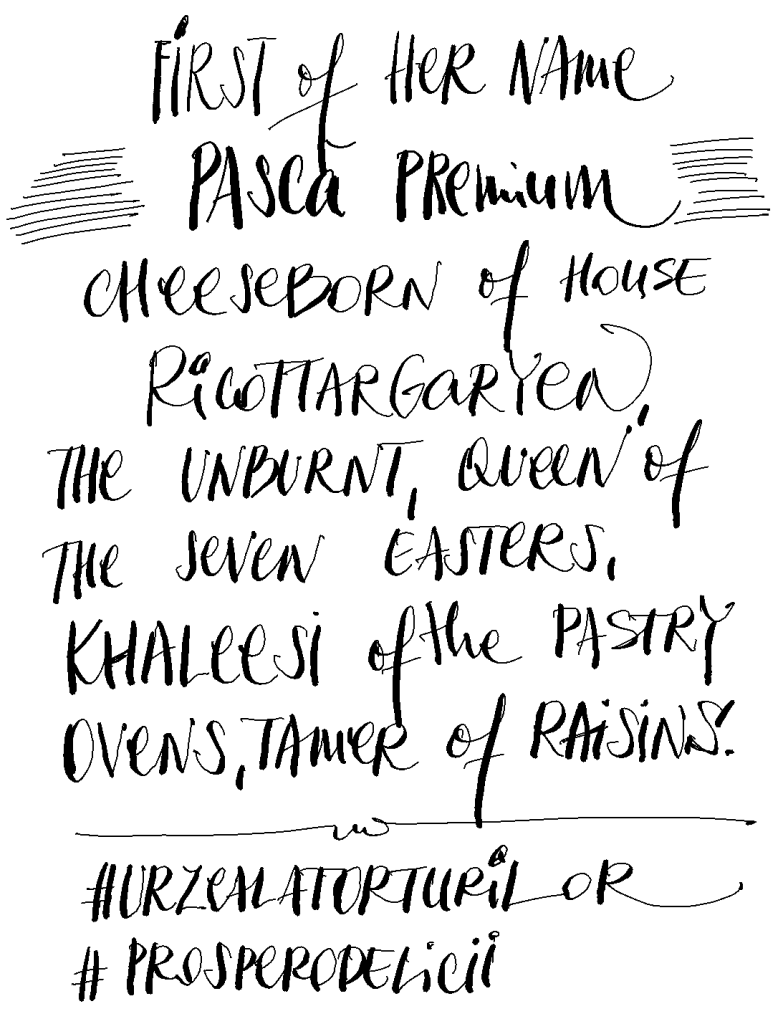 FiRST of HeR NAme
PASCa PRemium
CHeeSeBORN of HOUSE
RiCOTTARGaRYeN,
THe UNBURNT, QUeeN of
THe SeVeN EASTERS,
KHALeeSi of the PASTRY
OVeNS, TAMeR of RAiSiNS.
#URZeALATORTURiLOR
# PROSPERODELiCii